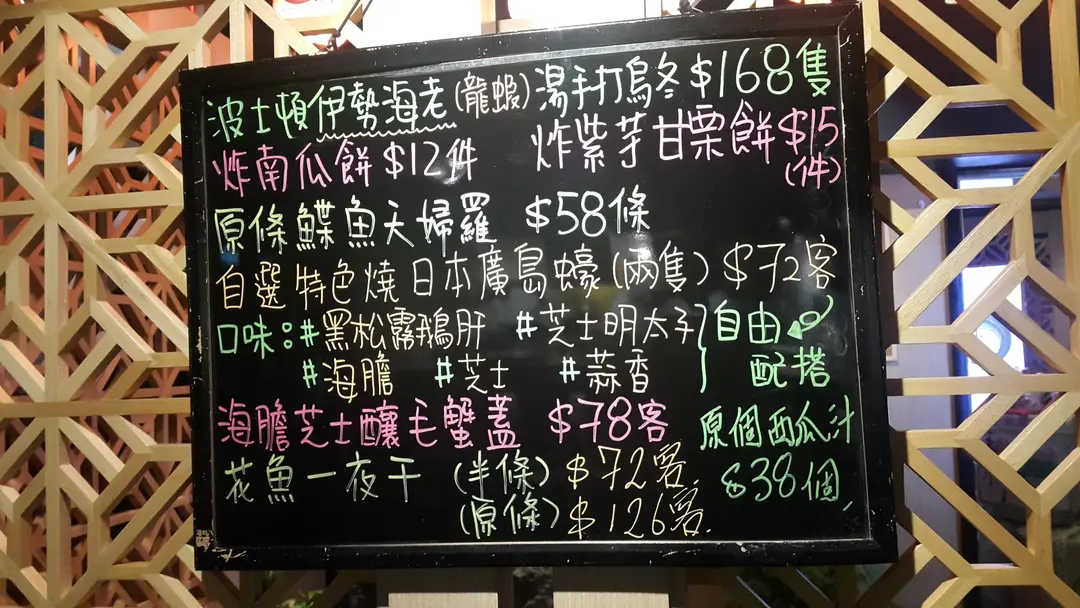 波士頓伊勢海老(龍蝦)湯手打烏冬$168隻
炸南瓜餅$12件 炸紫芋甘栗餅$15(件)
原條鰈魚天婦羅 $58條
自選特色燒日本廣島蠔(兩隻) $72客
口味:#黑松露鵝肝 #芝士明太子}自由
#海膽 #芝士 #蒜香 配搭
海膽芝士釀毛蟹蓋 $78客 原個西瓜汁
花魚一夜干 (半條) $72客. $38個.
(原條) $126客.